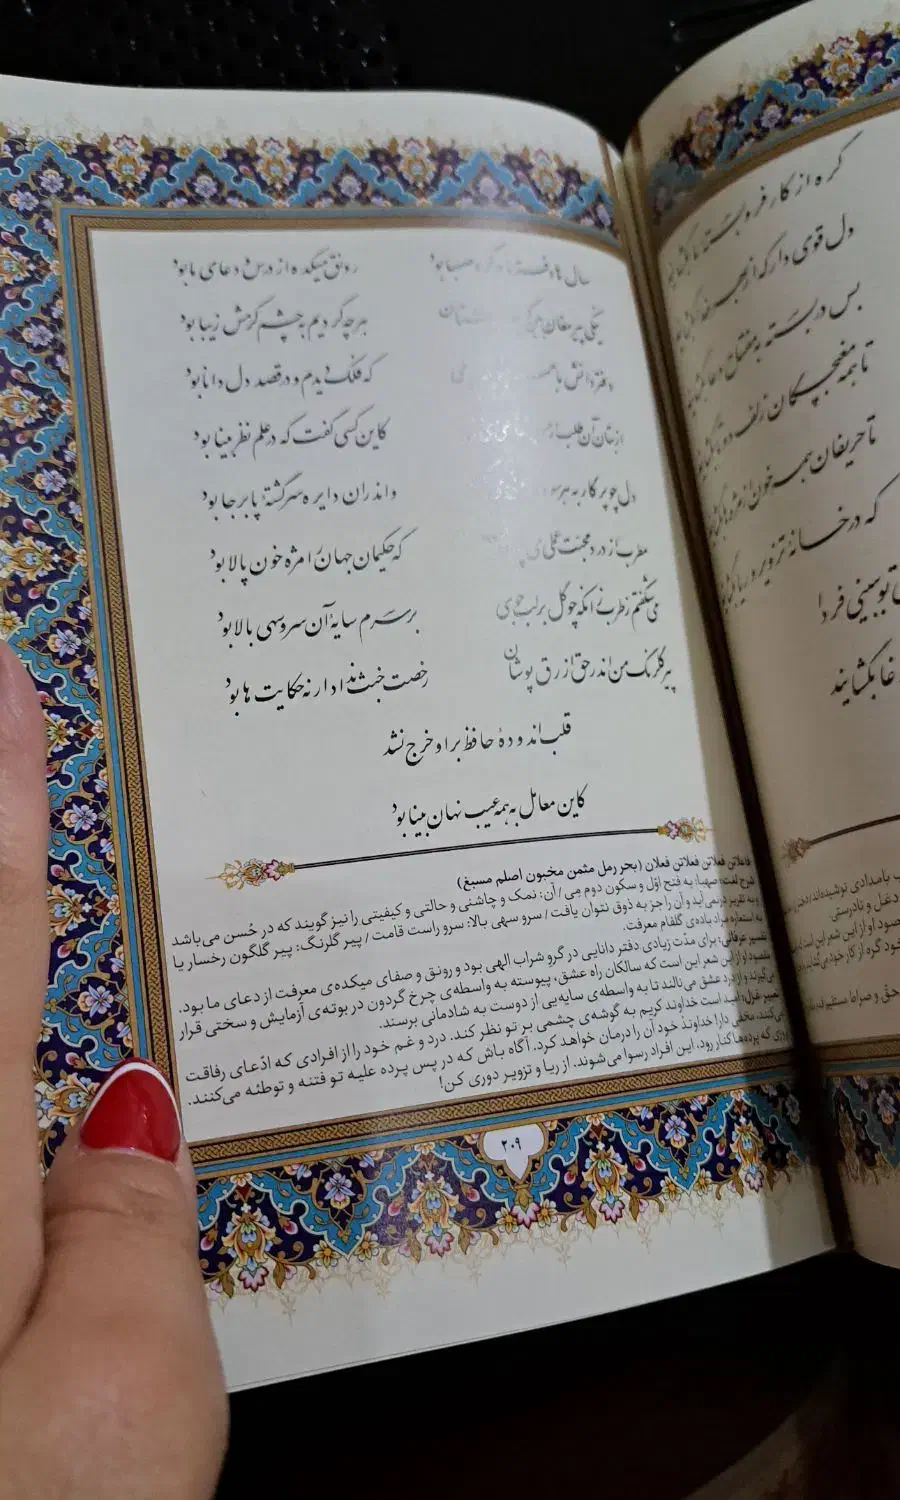 سال ها دفتر ما در گرو صهبا بود
رونق میکده از درس و دعای ما بود
نیکی پیر مغان بین
هر چه کردیم به چشم کرمش زیبا بود
دفتر دانش ما
که فلک دیدم و در قصد دل دانا بود
از بتان آن طلب ار
کاین کسی گفت که در علم نظر بینا بود
دل چو پرگار به هر سو
و اندران دایره سرگشتهٔ پابرجا بود
مطرب از درد محبت عملی می
که حکیمان جهان را مژه خون پالا بود
می شکفتم ز طرب زانکه چو گل بر لب جوی
بر سرم سایهٔ آن سرو سهی بالا بود
پیر گلرنگ من اندر حق ازرق پوشان
رخصت خبث نداد ارنه حکایت ها بود
قلب اندودهٔ حافظ بر او خرج نشد
کاین معامل به همه عیب نهان بینا بود
فاعلاتن فعلاتن فعلاتن فعلان (بحر رمل مثمن مخبون اصلم مسبغ)
شرح لغت: صهبا: به فتح اوّل و سکون دوم مِی / آن: نمک و چاشنی و حالتی و کیفیتی را نیز گویند که در حُسن می‌باشد
و به تقریر درنمی‌آید و آن را جز به ذوق نتوان یافت / سرو سهی بالا: سرو راست قامت / پیر گلرنگ: پیر گلگون رخسار یا
به استعاره مراد باده‌ی گلفام معرفت.
تفسیر عرفانی: برای مدّت زیادی دفتر دانایی در گرو شراب الهی بود و رونق و صفای میکده‌ی معرفت از دعای ما بود.
مقصود او از این شعر این است که سالکان راه عشق، پیوسته به واسطه‌ی چرخ گردون در بوته‌ی آزمایش و سختی قرار
می‌گیرند و از درد عشق می‌نالند تا به واسطه‌ی سایه‌یی از دوست به شادمانی برسند.
تعبیر غزل: امید است خداوند کریم به گوشه‌ی چشمی بر تو نظر کند. درد و غم خود را از افرادی که ادّعای رفاقت
می‌کنند، مخفی دار! خداوند خود آن را درمان خواهد کرد. آگاه باش که در پس پرده علیه تو فتنه و توطئه می‌کنند.
روزی که پرده‌ها کنار رود، این افراد رسوا می‌شوند. از ریا و تزویر دوری کن!
۲۰۹
گره از کار فروبسته ما
دل قوی دار که از بهر خدا
بس در بسته به مفتاح دعا
تا همه مغبچگان زلف دوتا
تا حریفان همه خون از مژه‌ها
که در خانهٔ تزویر و ریا
تو ببینی فردا
بگشایند